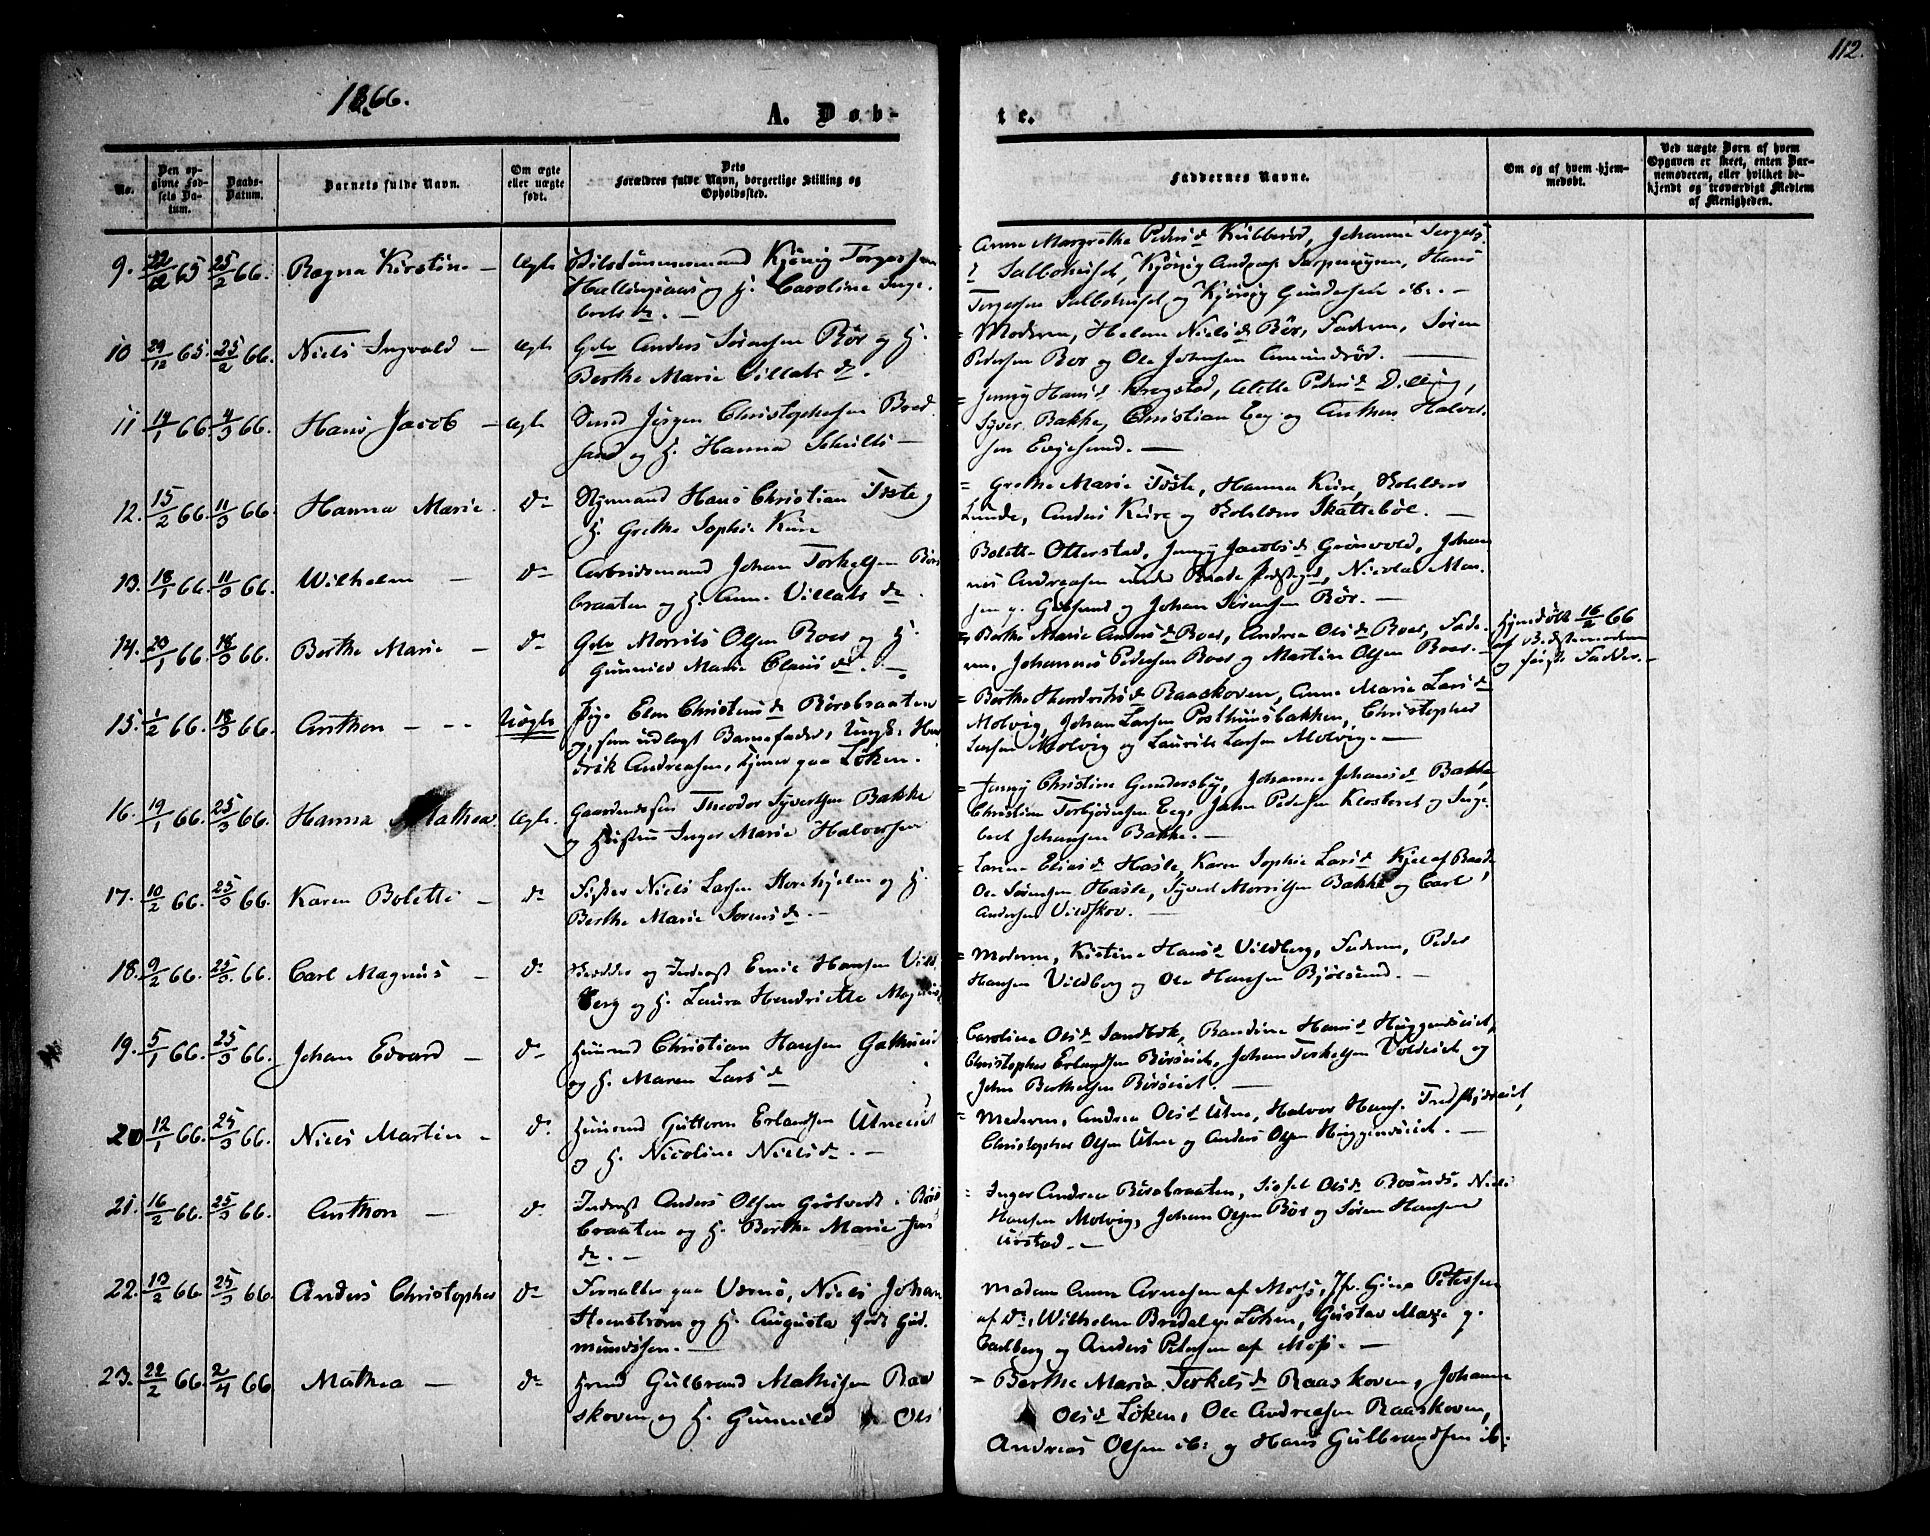 112.
1866.
A. Døb-
te.
No.
Den opgivne Fødsels Datum.
Daabs-Datum.
Barnets fulde Navn.
Om ægte eller uægte født.
Dets Forældres fulde Navn, borgerlige Stilling og Opholdssted.
Faddernes Navne.
Om og af hvem hjemmedøbt.
Ved uægte Børn af hvem Opgaven er skeet, enten Barnemoderen, eller hvilket bekjendt og troværdigt Medlem af Menigheden.
9. 65 25/2 66. Ragna Kirstine – Ægte
Kjönig Torgersen
og H. Caroline Inge-
borts d. –
= Anne Margrethe Peders d Kubberød, Johanne Torgers
d Saltbohuset, Kjönig Andreas Hans
Torgersen Saltbohuset og Kjönig Gundersen ib. –
10 29/12 65. 25/2 66. Niels Ingvald – Ægte
Gdb Anders Sörensen Bör og H.
Berthe Marie Villats d.
= Moderen, Helene Niels d Bör, Faderen, Sören
Pedersen Bor og Ole Johnsen Amundröd. –
11 14/1 66. 4/3 66. Hans Jacob – Ægte
Smed Jörgen Christophersen Bred
sand og H. Hanna Schults –
= Jenny Hans d Krogstad, Alette Peders d Dilling,
Syver Bakke, Christian Eeg og Anthon Halvor-
sen Evjesund. –
12. 15/2 66. 11/3 66. Hanna Marie. d
Styrmand Hans Christian Töste og
H. Grethe Sophie Kure
= Grethe Marie Töste, Hanna Kure,
Lunde, Anders Kure og Skattebøl. –
13. 18/1 66. 11/3 66. Wilhelm – d
Arbeidsmand Johan Torkelsen Börs
braaten og H. Anne Villats d.
Bolette Otterstad, Jenny Jacobs d Grönvold, Johan
nes Andreasen under Raade Præstegd, Nicolai Han-
sen og Johan Sörensen Bör. –
14. 20/1 66. 18/3 66. Berthe Marie – d
Gdb Morrits Olsen Roer og H.
Gunnild Marie Claus d. –
= Berthe Marie Anders d Roer, Andrea Ols d Roer, Fade-
ren, Johannes Pedersen Roer og Martin Olsen Roer. –
Hjemdöbt 16/2 66
af Bedstemoderen
og förste Fadder. –
15. 1/2 66. 18/3 66. Anthon – – – Uægte
Pige Elen Christens d Börsbraaten
og, som udlagt Barnefader, Ungk. Hen
drik Andreasen, tjener paa Löken.
= Berthe Hendriks d Raaskoven, Anne Marie Lars d
Molvig, Johan Larsen Posthuusbakken, Christopher
Larsen Molvig og Laurits Larsen Molvig. –
16. 19/1 66. 25/3 66. Hanna Mathea. Ægte.
Gaardmands Theodor Syvertsen Bakke
og Hustru Inger Marie Halvorsen
= Jenny Christine Gundersby, Johanne Johans d Bakke,
Christian Torbjörnsen Eeg, John Pedersen Klosteret og Inge-
bret Johansen Bakke. –
17. 10/2 66. 25/3 66. Karen Bolette – d
Fisker Niels Larsen Storehjelm og H.
Berthe Marie Sorens d. –
= Larine Elias d Hasle, Karen Sophie Lars d Kjel af Raade,
Ole Sörensen Hasle, Syvert Morritsen Bakke og Carl
Andersen Vildskov. –
18. 9/2 66. 25/3 66. Carl Magnus – d
Skrædder og Inderst Emil Hansen Vild
berg og H. Laura Hendriette Magnus
= Moderen, Kistine Hans d Vildberg, Faderen, Peder
Hansen Vildberg og Ole Hansen Bjölsund. –
19. 5/1 66. 25/3 66. Johan Edvard – d
Huusmd Christian Hansen
og H. Maren Lars d
Caroline Ols d Sandbæk, Randine Hans d Huggenæseiet,
Christopher Erlandsen Börseiet, Johan Torkelsen Voldeiet og
John Berthelsen Börseiet. –
20 12/1 66. 25/3 66. Niels Martin – d.
Huusmd Gutterm Erlandsen Utneeiet
og H. Nicoline Niels d. –
= Moderen, Andrea Ols d Utne, Halvor Hans.
Christopher Olsen Utne og Anders Olsen Huggenæseiet. –
21. 16/2 66. 25/3 66. Anthon – d.
Inderst Anders Olsen i Börs
braaten og H. Berthe Marie Jens
d. –
= Inger Andrea Börsbraaten, Ols d Niels
Hansen Molvig, Johan Olsen Bör og Sören Hansen
Urstad. –
22. 13/2 66. 25/3 66. Anders Christopher d
Forvalter paa Værne, Niels Johan
Holmström og H. Augusta född Gud
mundsen. –
Madam Anna Arnesen af Moss, Jfr. Gina Petersen
af D., Wilhelm Bredal paa Löken, Gustav og
Carlberg og Anders Petersen af Moss. –
23. 22/2 66. 2/4 66. Mathea – d
Hmd Gulbrand Mathisen Raa
skoven og H. Gunnild Ols
– Berthe Maria Torkels d Raaskoven, Johanne
Ols d Löken, Ole Andreasen Raaskoven,
Andreas Olsen ib: og Hans Gulbrandsen ib: